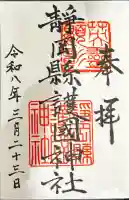 奉拝
靜岡縣護國神社
令和八年三月二十三日